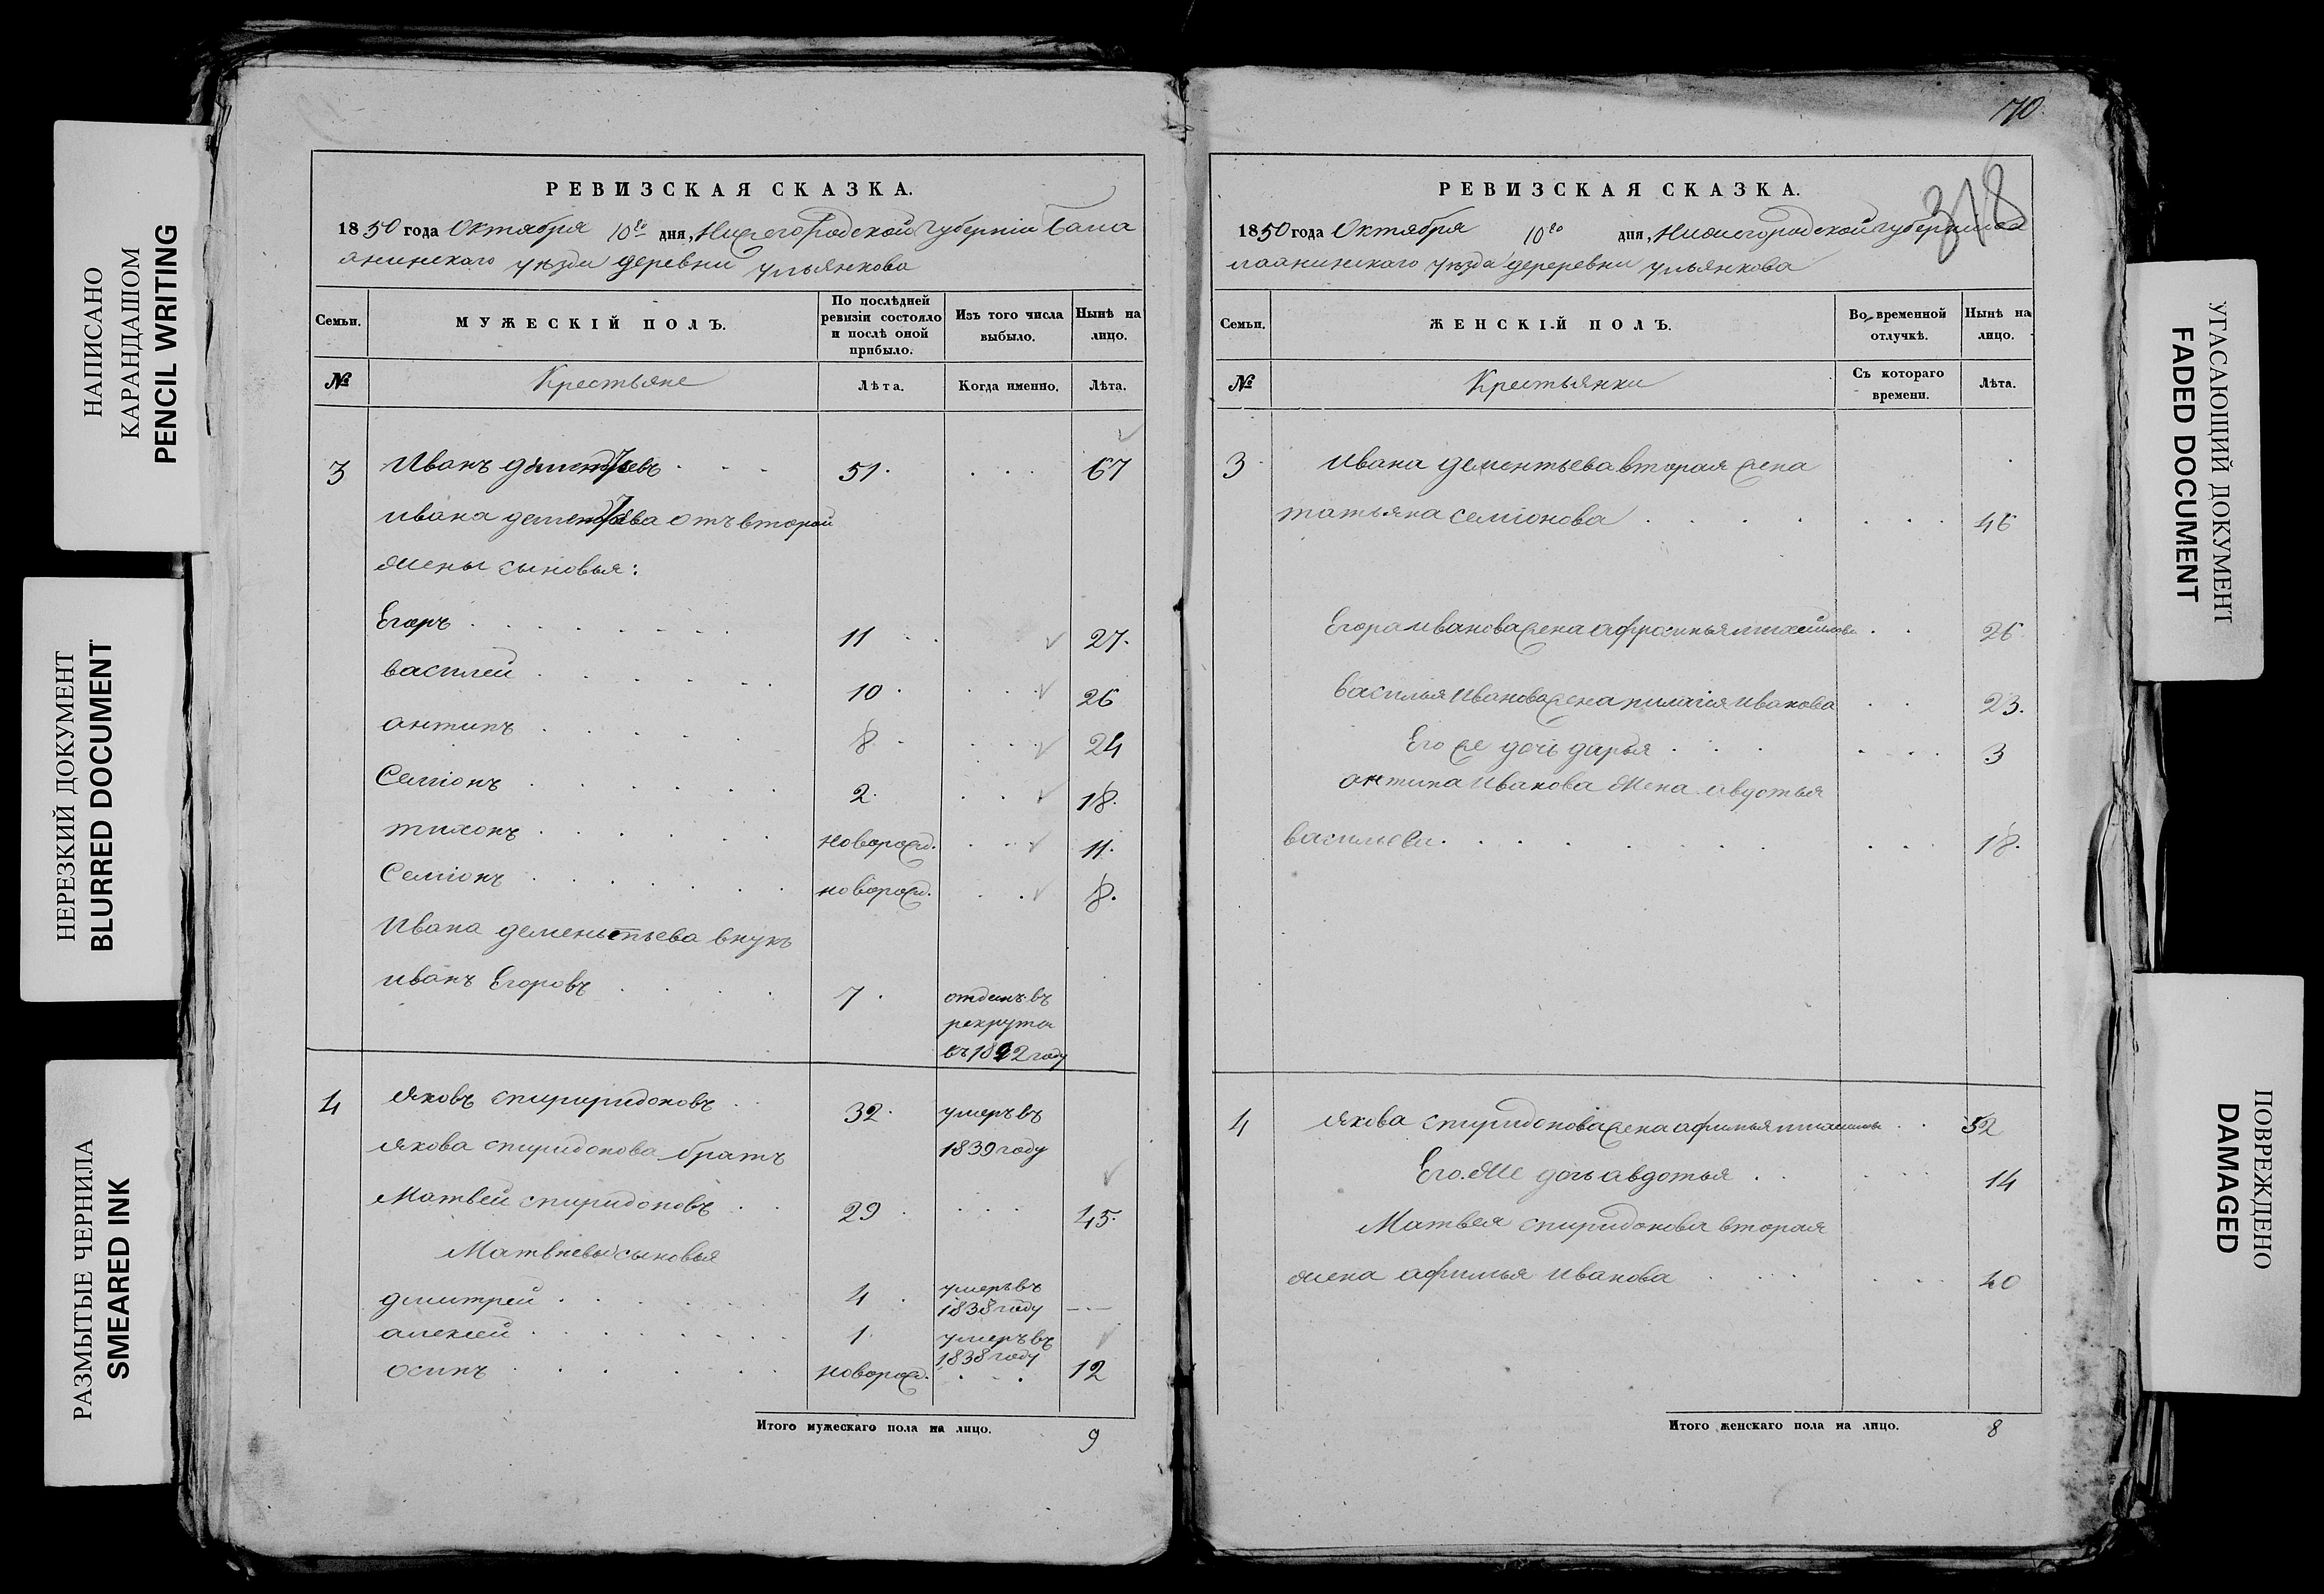 НАПИСАНО
КАРАНДАШОМ
PENCIL WRITING
НЕРЕЗКИЙ ДОКУМЕНТ
BLURRED DOCUMENT
РАЗМЫТЫЕ ЧЕРНИЛА
SMEARED INK
РЕВИЗСКАЯ СКАЗКА.
1850 года Октября 10го дня, Нижегородской Губернiи
уѣзда деревни ульянкова
Семьи. МУЖЕСКІЙ ПОЛЪ. По послѣдней ревизіи состояло и послѣ оной прибыло. Изъ того числа выбыло. Нынѣ на лицо.
№ Крестьяне Лѣта. Когда именно. Лѣта.
3 Иванъ дементьевъ 51. 67
ивана дементьева отъ второй
жены сыновья:
Егоръ 11 27.
василей 10. 26
антипъ 8 24
Семіонъ 2. 18.
тихонъ новорожд. 11.
Семіонъ новорожд. 8.
Ивана дементьева внукъ
иванъ Егоровъ 7. отданъ въ
рекрута
въ 18 2 году
4 Яковъ спириридоновъ 32. умеръ въ
якова спиридонова братъ 1839 году
Матвей спиридоновъ 29 45.
Матвѣевы сыновья
дмитрей 4 умеръ въ
1838 году
алексей 1 умеръ въ
1838 году
осипъ новорожд. 12
Итого мужескаго пола на лицо. 9
170.
318
РЕВИЗСКАЯ СКАЗКА.
1850 года Октября 10го дня, Нижегородской губернии
уѣзда дереревни ульянкова
Семьи. ЖЕНСКІЙ ПОЛЪ. Во временной отлучкѣ. Нынѣ на лицо.
№ Крестьянки Съ котораго времени. Лѣта.
3 Ивана дементьева вторая жена
татьяна семіонова 46
Егора иванова жена афросинья михайлова 26
василья Иванова жена пилагія иванова 23.
Его же дочь дарья 3
антипа Иванова жена авдотья
васильева. 18.
4 якова спиридонова жена афимья 52
Его же дочь авдотья 14
Матвея спиридонова вторая
жена афимья иванова 40
Итого женскаго пола на лицо. 8
УГАСАЮЩИЙ ДОКУМЕНТ
FADED DOCUMENT
ПОВРЕЖДЕНО
DAMAGED